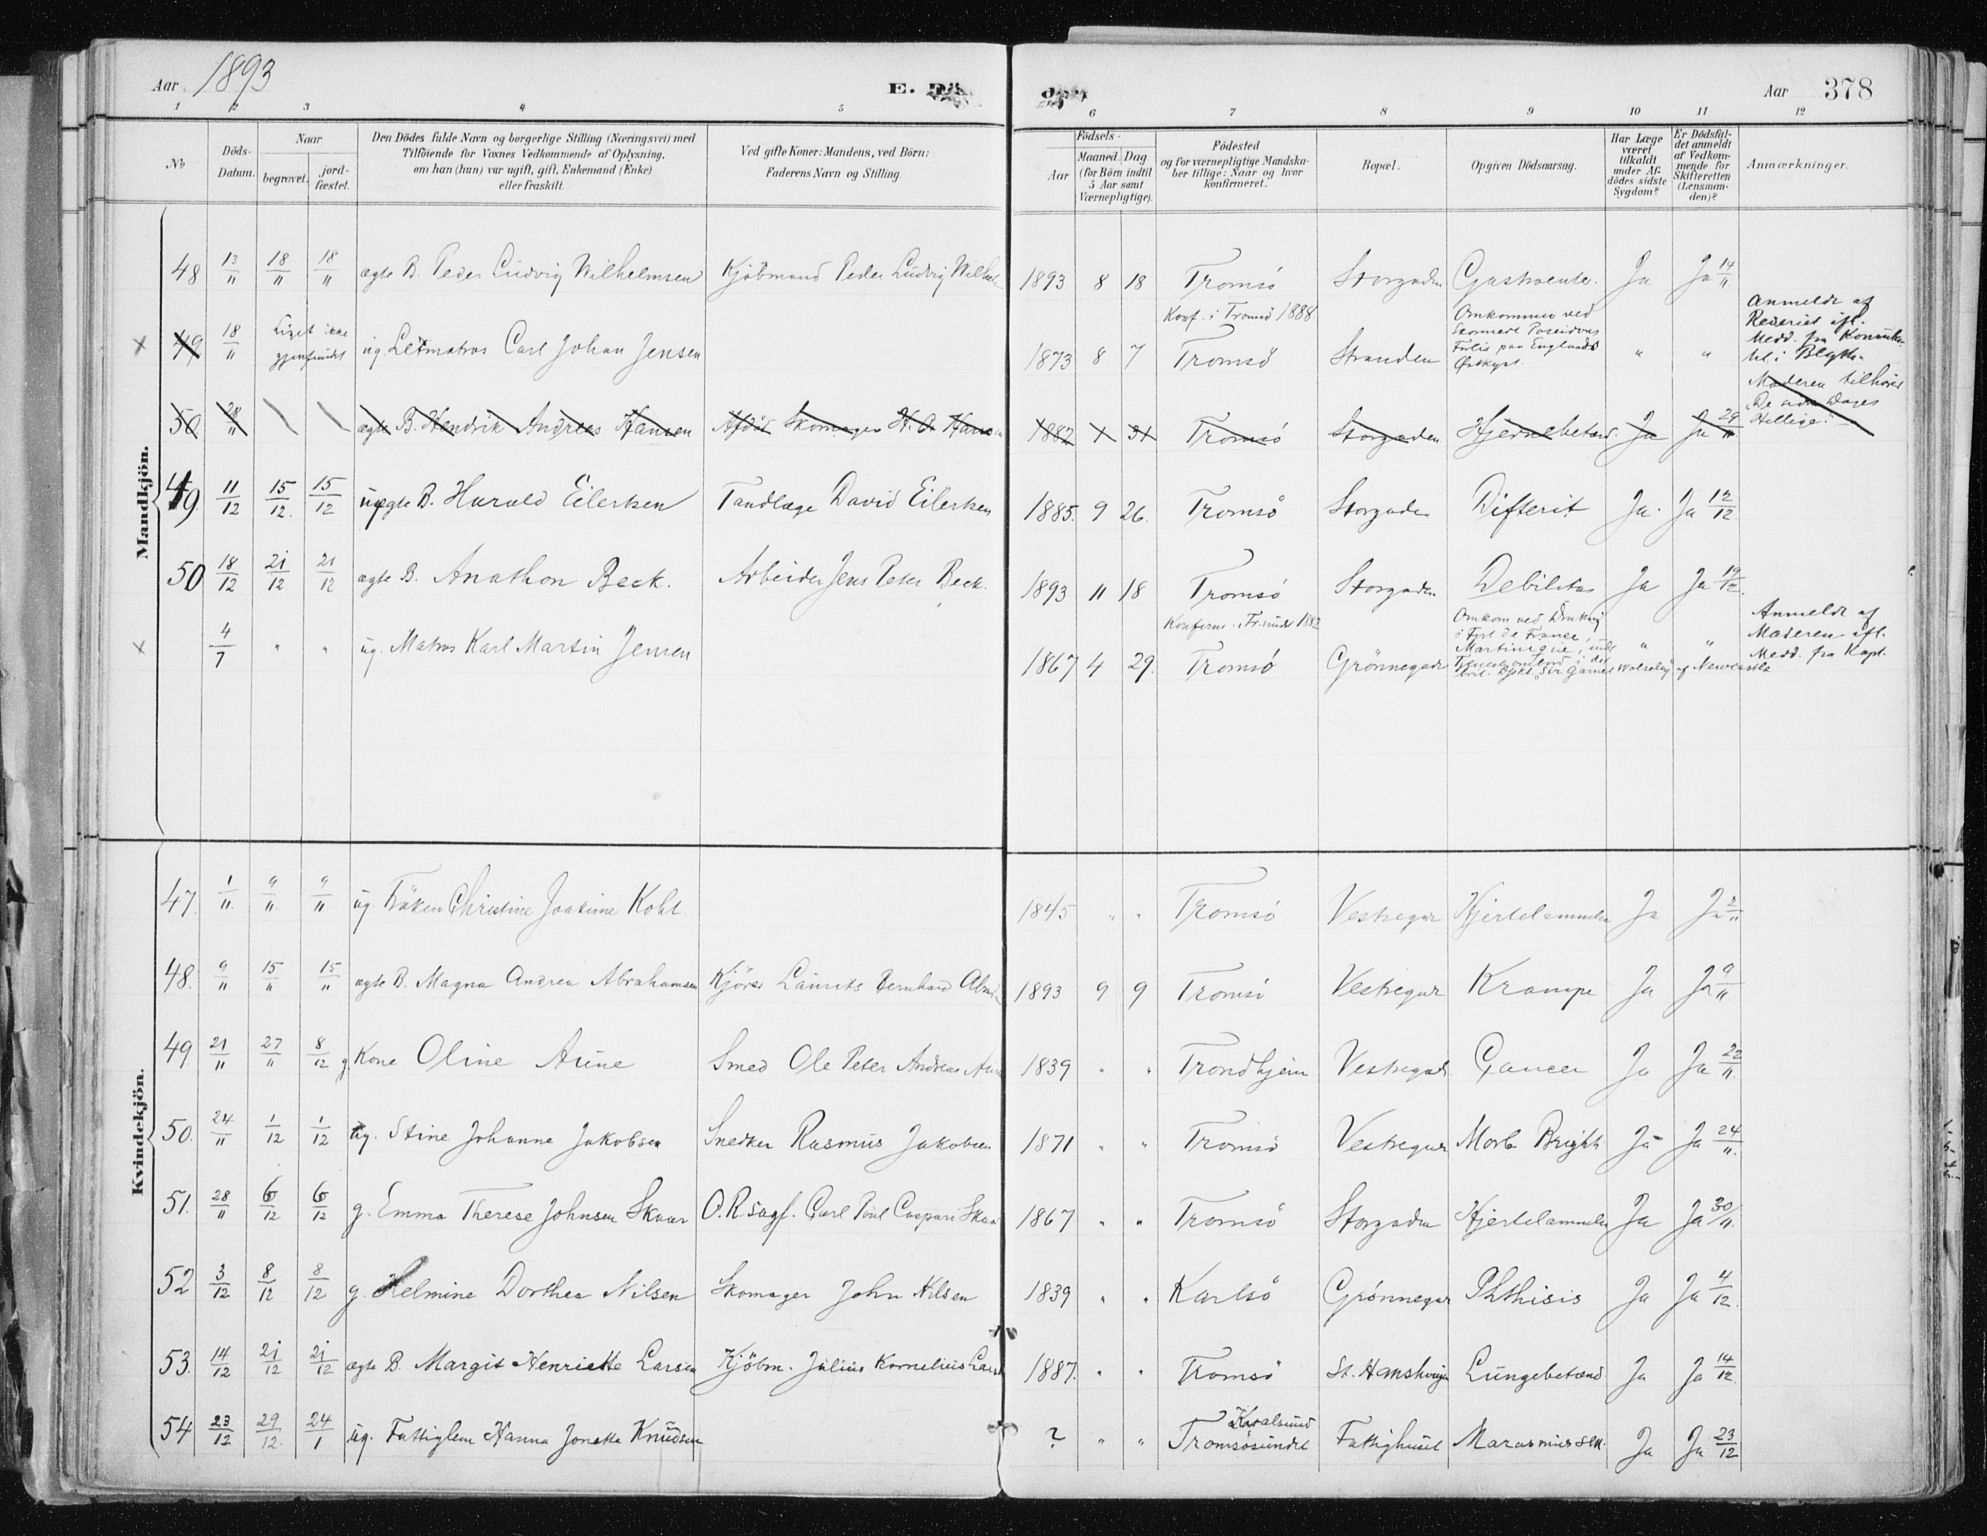 Aar 1893 E. Aar 378
1 2 3 4 5 6 7 8 9 10 11 12
No
Döds-
Datum.
Naar
begravet.
jord-
fæstet.
Den Dödes fulde Navn og borgerlige Stilling (Næringsvei) med
Tilföiende for Voxnes Vedkommende af Oplysning,
om han (hun) var ugift, gift, Enkemand (Enke)
eller fraskilt.
Ved gifte Koner: Mandens, ved Börn:
Faderens Navn og Stilling.
Födsels-
Aar
Maaned. Dag
(for Börn indtil
5 Aar samt
Værnepligtige).
Födested
og for værnepligtige Mandska-
ber tillige: Naar og hvor
konfirmeret.
Bopæl.
Opgiven Dödsaarsag.
Har Læge
været
tilkaldt
under Af-
dödes sidste
Sygdom?
Er Dödsfal-
det anmeldt
af Vedkom-
mende for
Skifteretten
(Lensman-
den)?
Anmærkninger.
Mandkjön.
48 13/11 18/11 18/11 ægte B. Peder Ludvig Wilhelmsen Kjöbmand Peder Ludvig 1893 8 18 Tromsö Storgaden Ja Ja 14/11
x 49 18/11 Liget ikke gjenfundet ug. Letmatros Carl Johan Jensen 1873 8 7 Konf. i Tromsö 1888 Tromsö Stranden Omkommen ved
Poseidons
Forlis paa Englands
Østkyst. " "
Anmeldt af
Rederiet ifl.
Medd. fra
i Blyth.
50 28/11 ægte B. Hendrik Andreas Hansen Afdød Skomager H. A. Hansen 1882 31 Tromsö Storgaden Hjernebetænd. Ja Ja 29/11
Moderen tilhører
"De sidste Dages
Hellige".
49 11/12 15/12 15/12 uægte B. Harald Eilertsen Tandlæge David Eilertsen 1885 9 26 Tromsö Storgaden Difterit Ja Ja 12/12
50 18/12 21/12 21/12 ægte B. Anathon Beck. Arbeider Jens Peter Beck. 1893 11 18 Tromsö Storgaden Debilitas Ja Ja 19/12
x 4/7 " " ug. Matros Karl Martin Jensen 1867 4 29. Konfirm. i Tr.sund 1882 Tromsö Grönnegade Omkom ved Drukning
i Fort de France,
Martinique,
brit. Dpsk. Sir Garnet Wolseley af Newcastle " "
Anmeldt af
Moderen ifl.
Medd. fra Kapt.
Kvindekjön.
47. 1/11 9/11 9/11 ug. Fröken Christine Joakime Koht 1845 " " Tromsö Vestregade Hjertelammelse Ja Ja 2/11
48. 9/11 15/11 15/11 ægte B. Magna Andrea Abrahamsen Kjörer Laurits Bernhard 1893 9 9 Tromsö Vestregade Krampe Ja Ja 9/11
49. 21/11 27/11 8/12 g. Kone Oline Aune Smed Ole Peter Andreas Aune 1839 " " Trondhjem Vestregade Cancer Ja Ja 22/11
50. 24/11 1/12 1/12 ug. Stine Johanne Jakobsen Snedker Rasmus Jakobsen 1871 " " Tromsö Vestregade Morb. Brigth. Ja Ja 24/11
51. 28/11 6/12 6/12 g. Emma Therese Johnsen Skaar O.R.sagf. Carl Poul Caspari Skaar 1867 " " Tromsö Storgaden Hjertelammelse Ja Ja 30/11
52 3/12 8/12 8/12 g. Helmine Dorthea Nilsen Skomager John Nilsen 1839 " " Karlsö Grönnegade Phthisis Ja Ja 4/12
53. 14/12 21/12 21/12 ægte B. Margit Henriette Larsen Kjöbm. Julius Kornelius Larsen 1887. " " Tromsö St. Hanshaugen Lungebetænd Ja Ja 14/12
54 23/12 29/12 24/1 ug. Fattiglem Hanna Jonetta Knudsen ? " " Kvalsund Tromsösundet Fattighuset Marasmus sen. Ja Ja 23/12